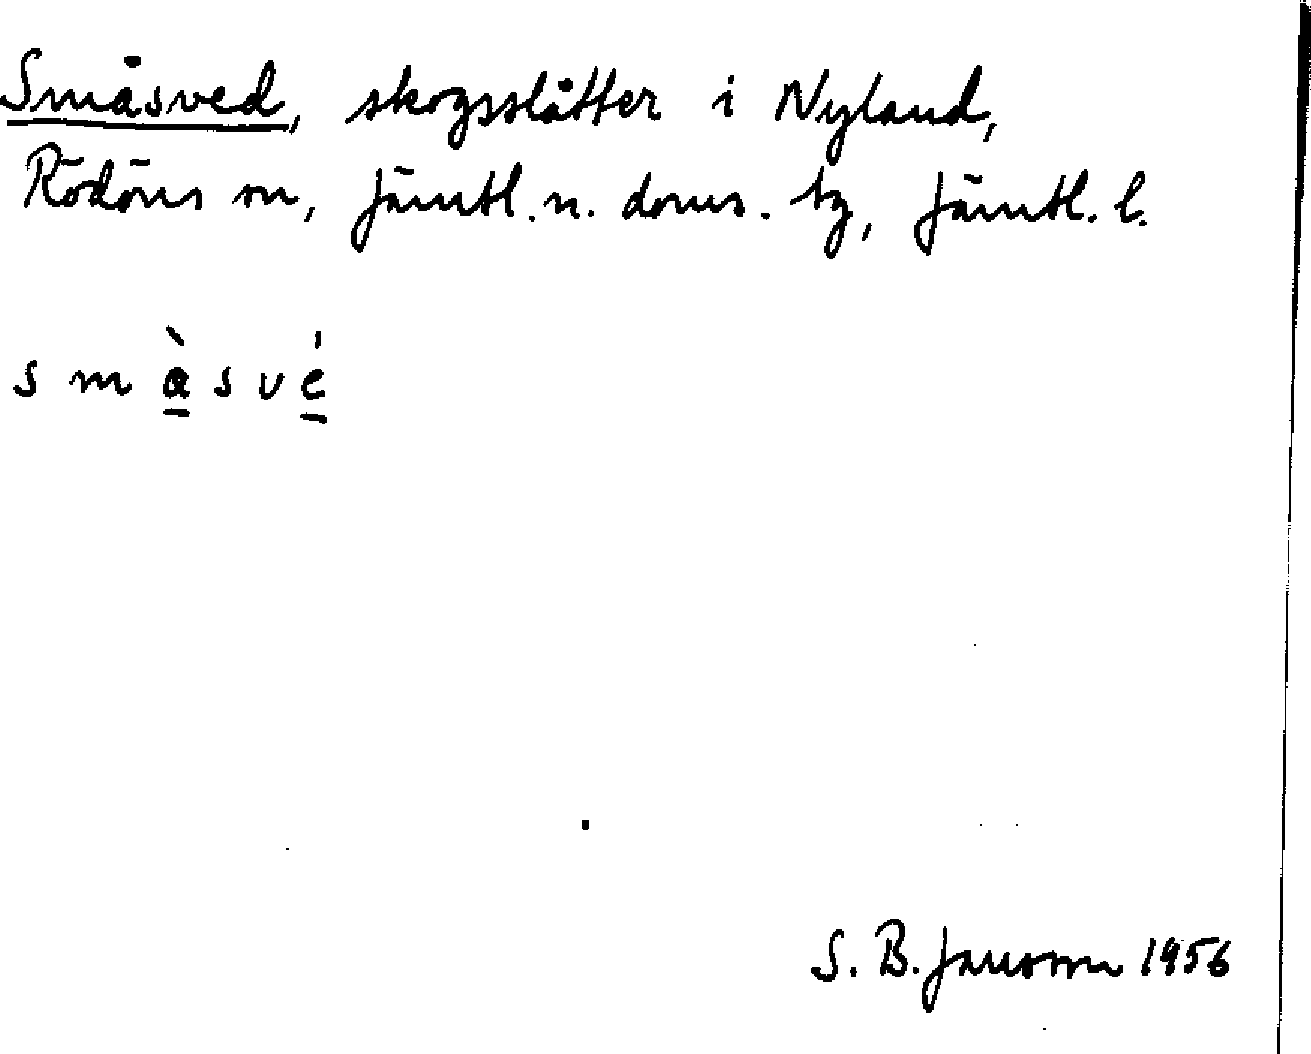 Småsved, skogsslåtter i Nyland,
Rödöns sn, Jämtl. n. doms. tg, Jämtl. l.
s m à s v é
S. B. Jansson 1956